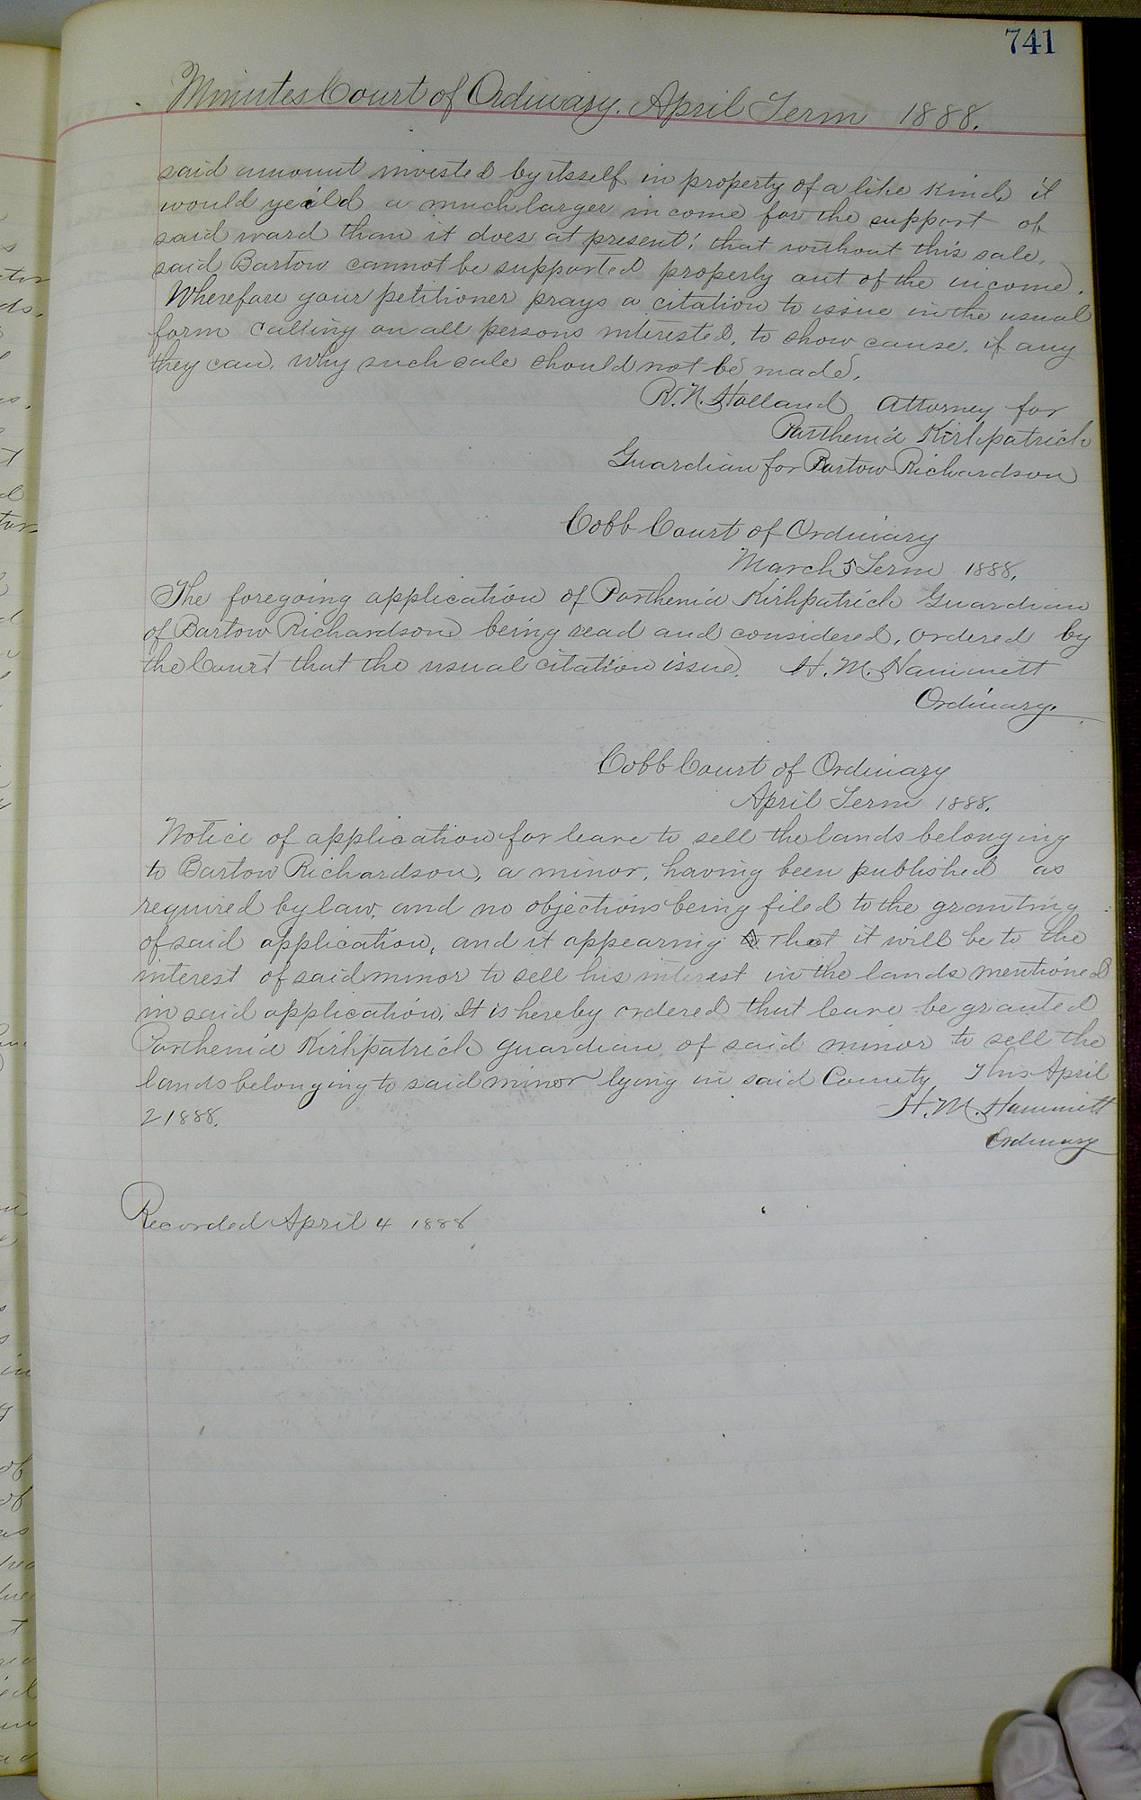 741
Minutes Court of Ordinary. April Term 1888.
said amount invested by itsself in property of a like kind, it
would yeild a much larger income for the support of
said ward than it does at present; that without this sale,
said Bartow cannot be supported properly out of the income.
Wherefore your petitioner prays a citation to issue in the usual
form calling on all persons interested, to show cause, if any
they can, why such sale should not be made.
R. N. Holland Attorney for
Parthenia Kirkpatrick
Guardian for Bartow Richardson
Cobb Court of Ordinary
March 5 Term 1888.
The foregoing application of Parthenia Kirkpatrick Guardian
of Bartow Richardson being read and considered, ordered by
the Court that the usual citation issue. H. M. Hammett
Ordinary.
Cobb Court of Ordinary
April Term 1888.
Notice of application for leave to sell the lands belonging
to Bartow Richardson, a minor, having been published as
required by law, and no objections being filed to the granting
of said application, and it appearing that it will be to the
interest of said minor to sell his interest in the lands mentioned
in said application, It is hereby ordered that leave be granted
Parthenia Kirkpatrick guardian of said minor to sell the
lands belonging to said minor lying in said County, This April
2 1888. H. M. Hammett
Ordinary
Recorded April 4 1888